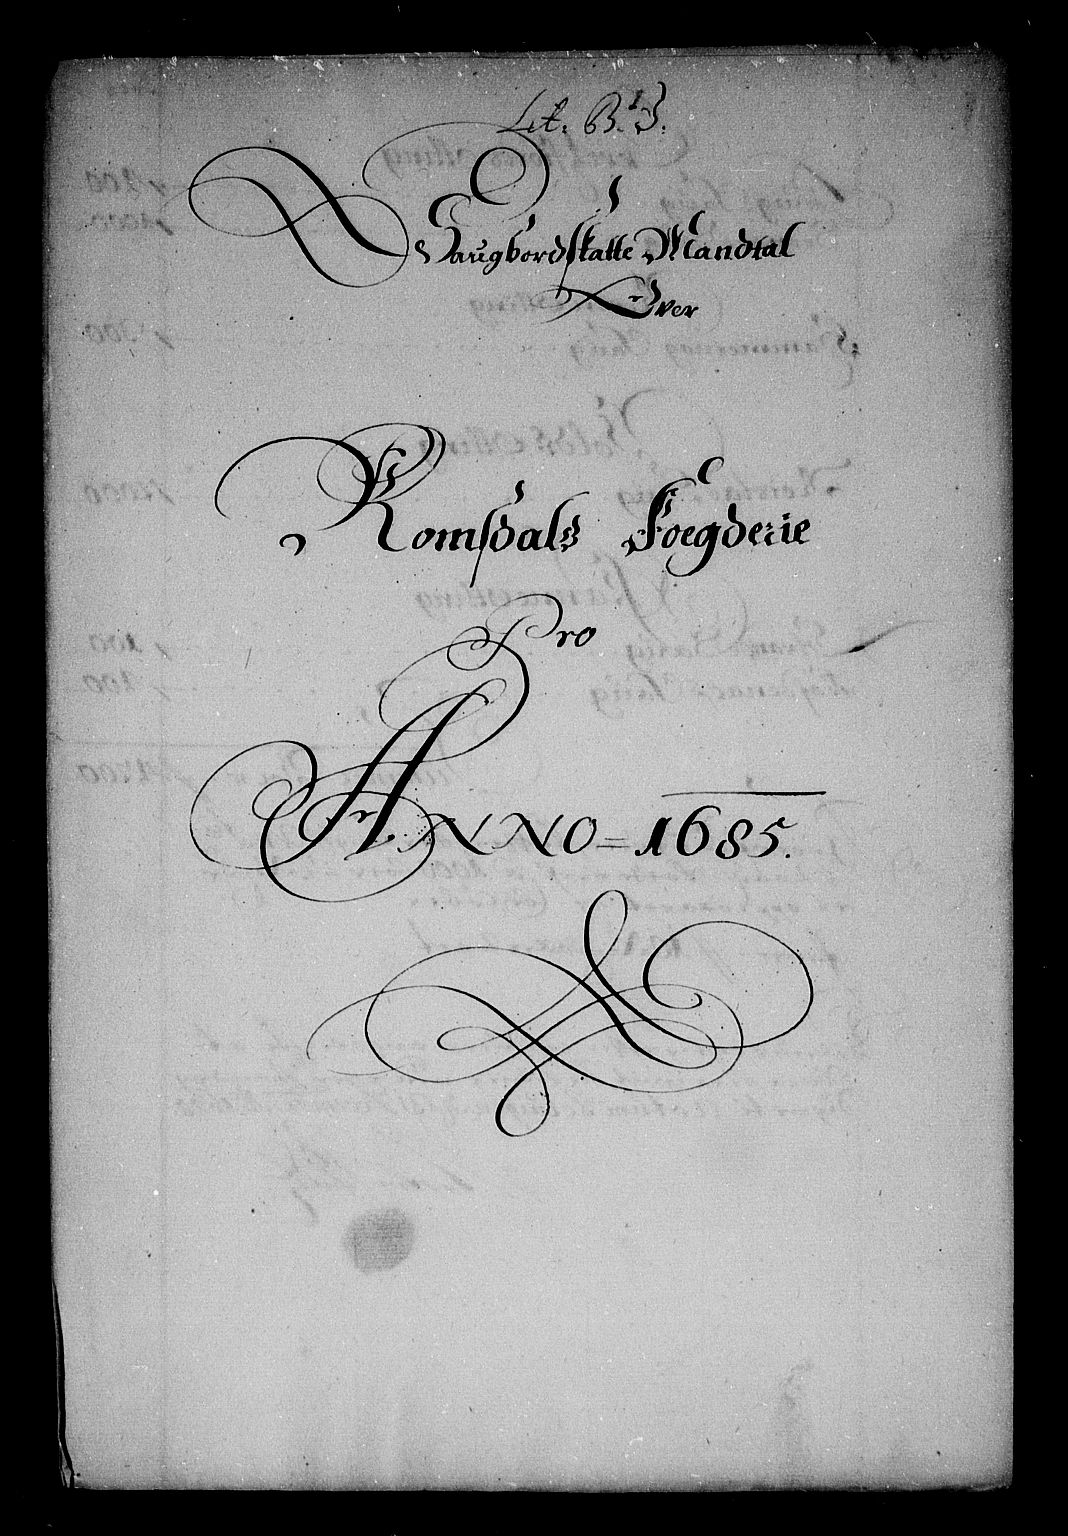 Lit. B. J.
Saugbordskatte Mandtal
Over
Romsdals Foegderie
Pro
ANNO = 1685.